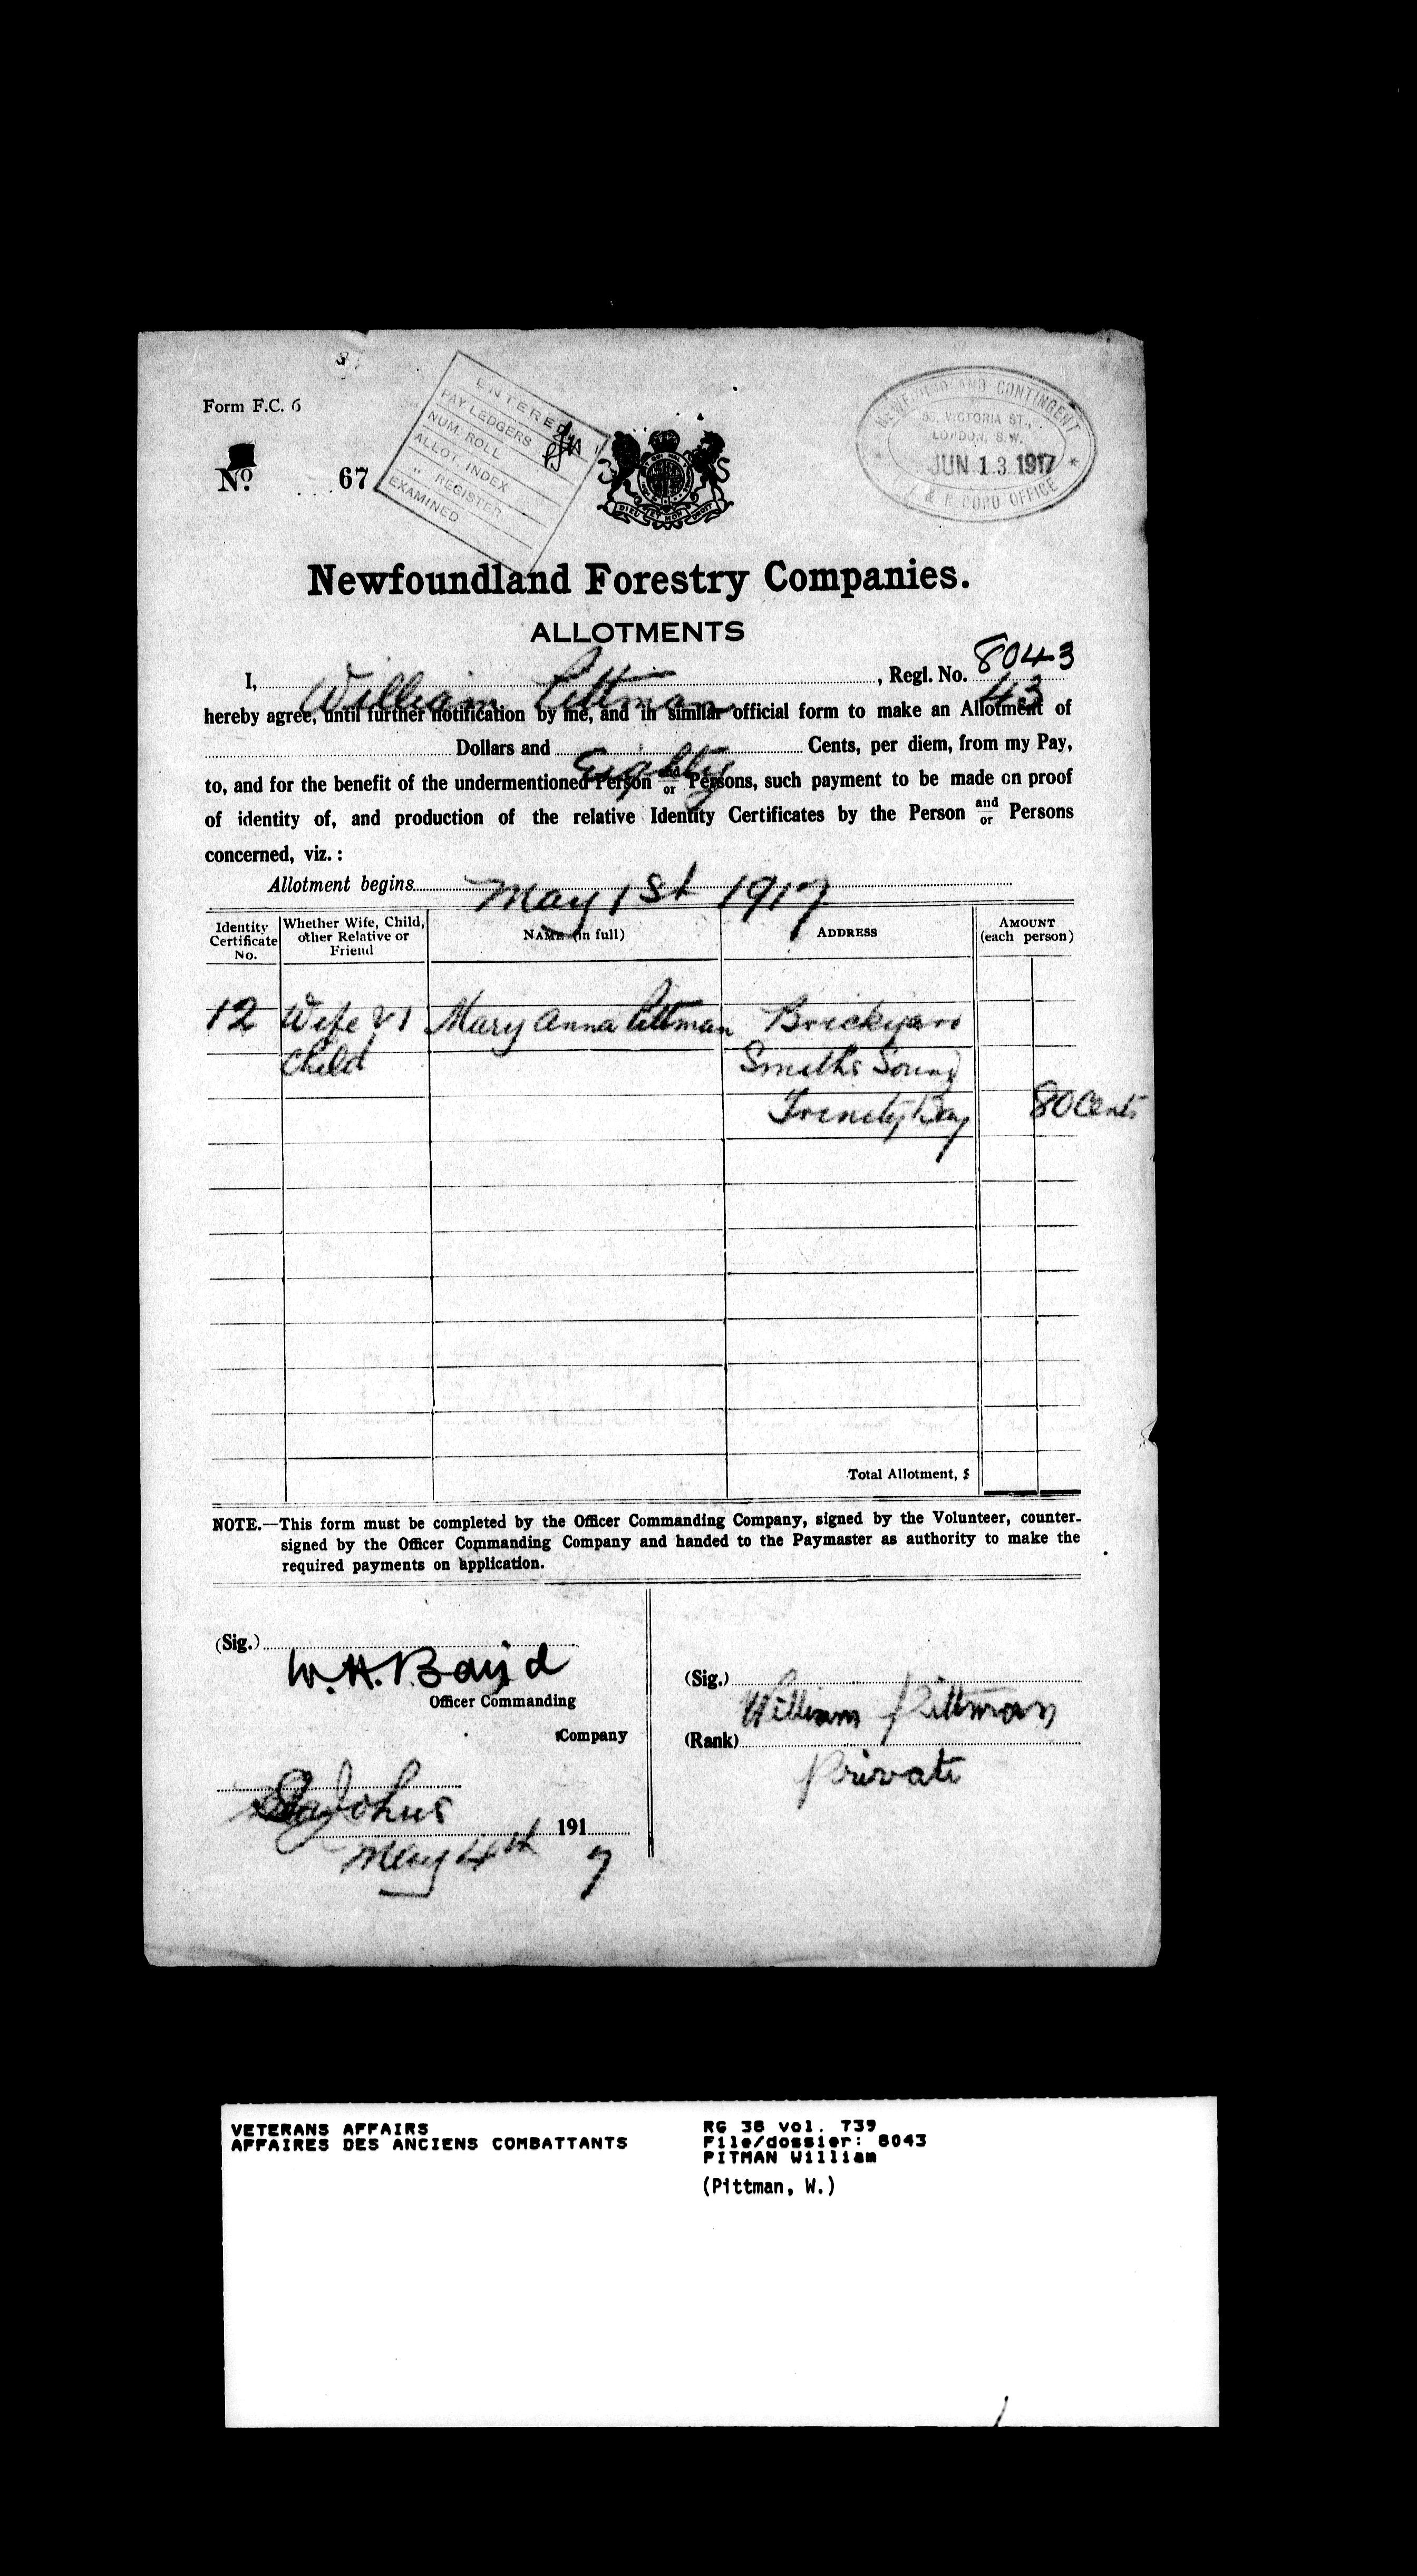 Form F.C. 6
No. 67
ENTERED
PAY LEDGERS
NUM. ROLL
ALLOT. INDEX
" REGISTER
EXAMINED
DIEU ET MON DROIT
NEWFOUNDLAND CONTINGENT
58, VICTORIA ST.,
LONDON, S.W.
JUN 13 1917
& RECORD OFFICE
Newfoundland Forestry Companies.
ALLOTMENTS
I, William Pittman, Regl. No. 8043
43
hereby agree, until further notification by me, and in similar official form to make an Allotment of
Dollars and Eighty Cents, per diem, from my Pay,
to, and for the benefit of the undermentioned Person and or Persons, such payment to be made on proof
of identity of, and production of the relative Identity Certificates by the Person and or Persons
concerned, viz. :
Allotment begins May 1st 1917
Identity Certificate No. Whether Wife, Child, other Relative or Friend NAME (in full) ADDRESS AMOUNT (each person)
12 Wife & 1 Mary Anna Pittman Brickyard
Child Smiths Sound
Trinity Bay 80 Cents
Total Allotment, $
NOTE.—This form must be completed by the Officer Commanding Company, signed by the Volunteer, counter-
signed by the Officer Commanding Company and handed to the Paymaster as authority to make the
required payments on application.
(Sig.) W.H. Baird
Officer Commanding
Company
St Johns
May 4th 1917
(Sig.) William Pittman
(Rank) Private
VETERANS AFFAIRS
AFFAIRES DES ANCIENS COMBATTANTS
RG 38 vol. 739
File/dossier: 8043
PITMAN William
(Pittman, W.)